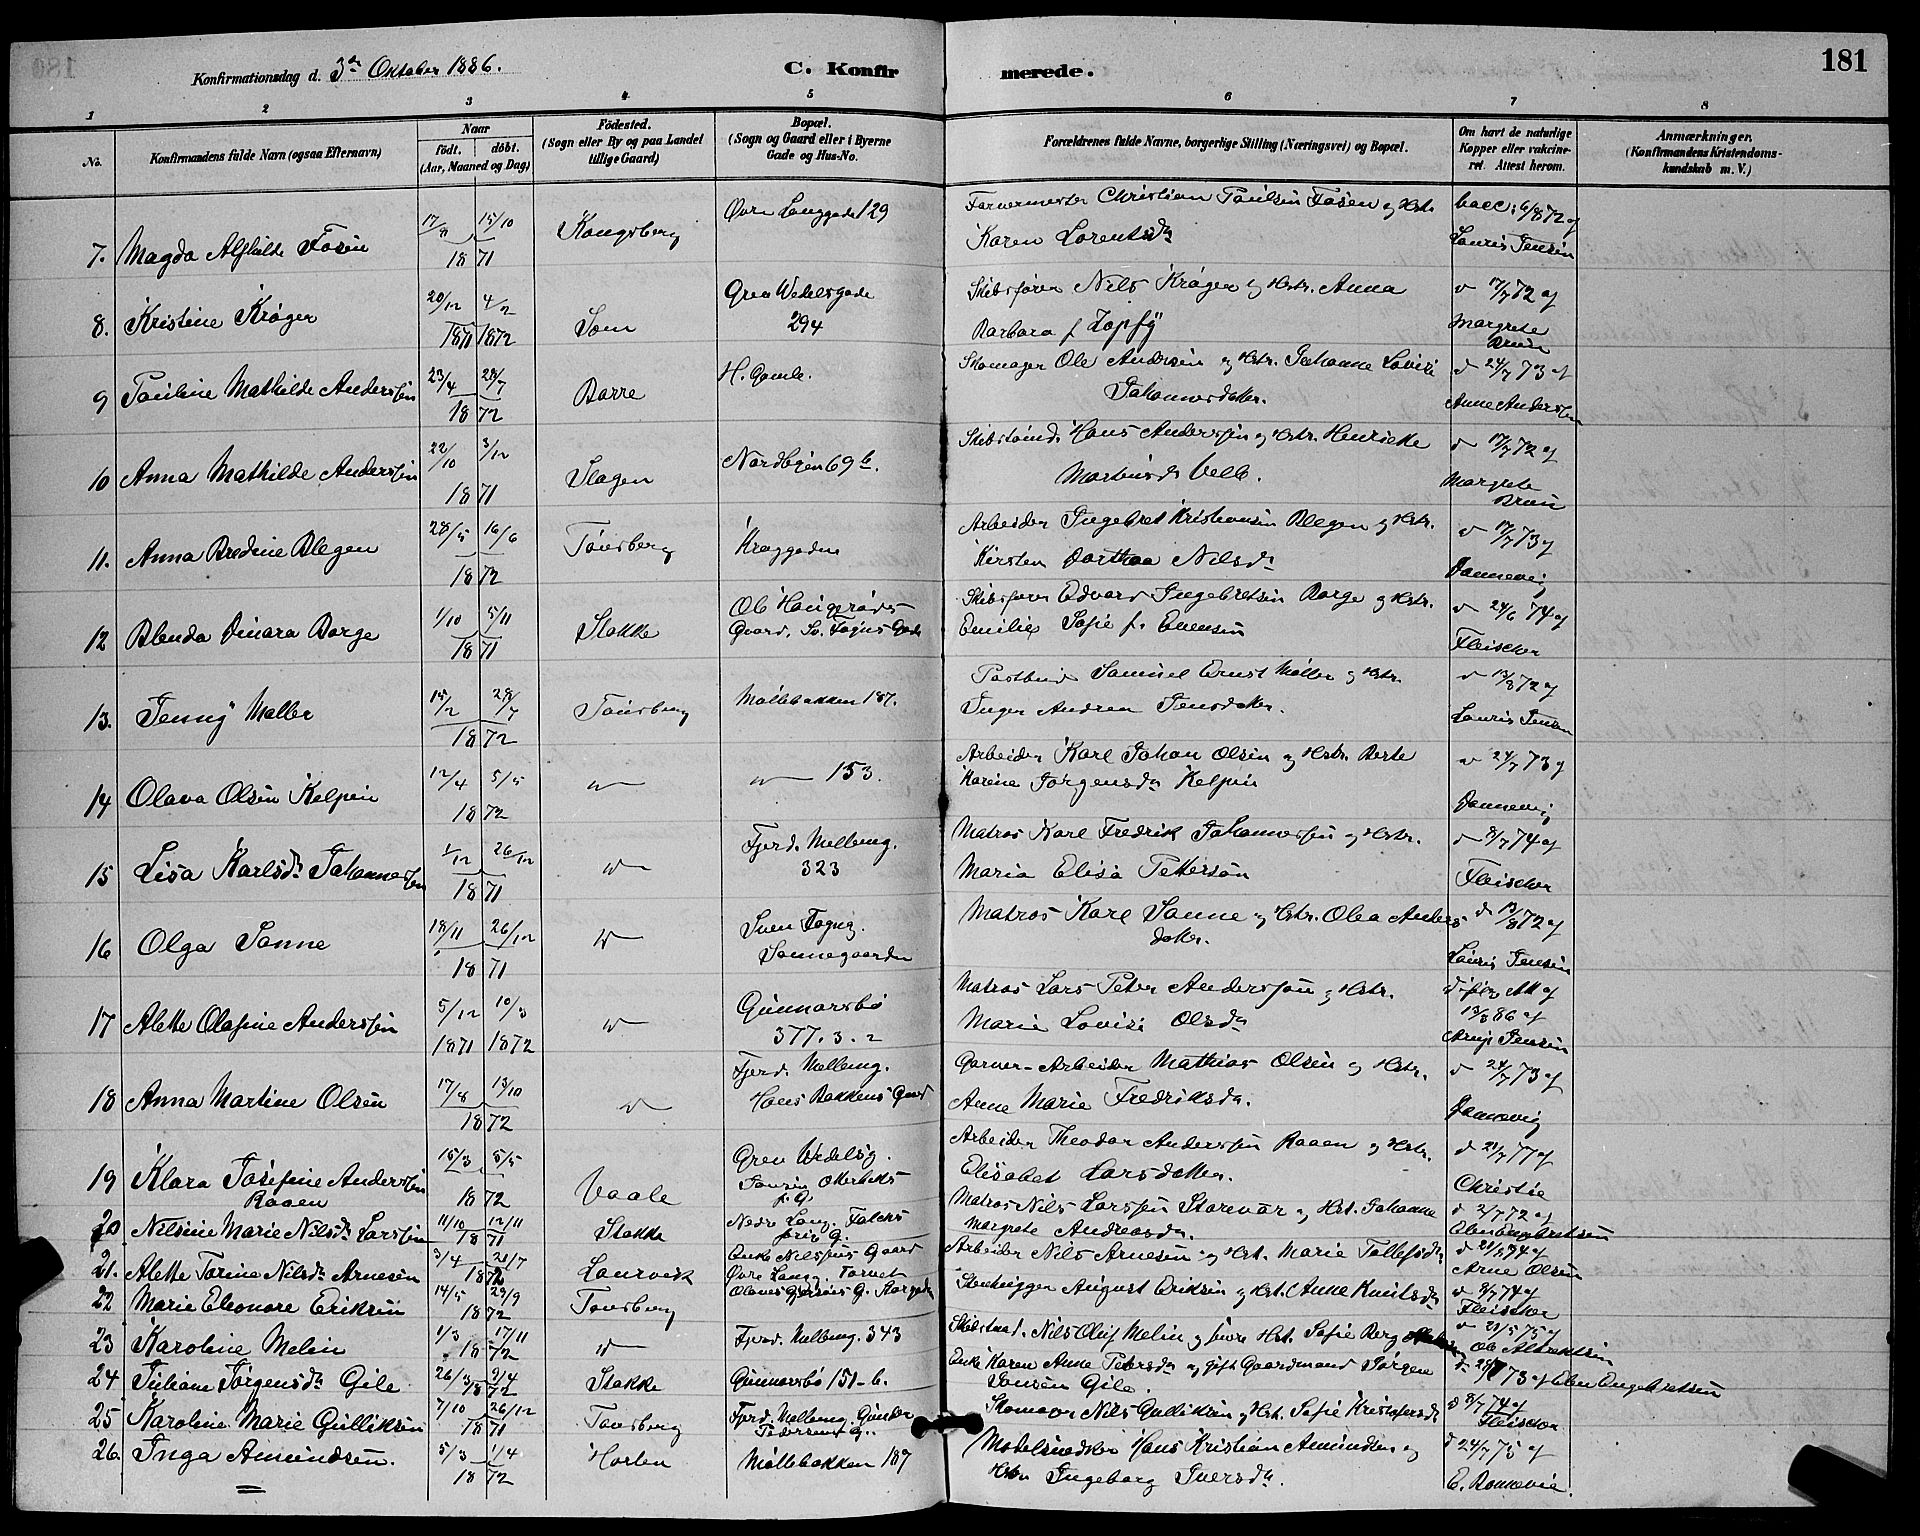 181
Konfirmationsdag d. 3die Oktober 1886.
C. Konfirmerede.
1 2 3 4 5 6 7 8
No.
Konfirmandens fulde Navn (ogsaa Efternavn)
Naar
födt. döbt.
(Aar, Maaned og Dag)
Födested.
(Sogn eller By og paa Landet
tillige Gaard)
Bopæl.
(Sogn og Gaard eller i Byerne
Gade og Hus-No.
Forældrenes fulde Navne, borgerlige Stilling (Næringsvei) og Bopæl.
Om havt de naturlige
Kopper eller vakcine-
ret. Attest herom.
Anmærkninger.
(Konfirmandens Kristendoms-
kundskab m. V.)
7. Magda Alfhilde Fosen 17/8 15/10 1871 Kongsberg Øvre Langgade 129 Farvermester Christian Paulsen Fosen og Hstr.
Karen Lorentsdr vacc. 6/8 72 af
Lauris Jensen
8. Kristine Krøger 20/12 4/2 1871 1872 Sem Grev Wedelsgade
294 Skibsfører Nils Krøger og Hstr. Anna
Barbara f. Zopfy 17/7 72 af
Margrete
Bruun
9 Pauline Mathilde Anderssen 23/4 28/7 1872 Borre H. Gamle. Skomager Ole Andersen og Hstr. Johanne Lovise
Johannesdatter. d 24/7 73 af
Anne Anderssen
10 Anna Mathilde Anderssen 22/10 3/12 1871 Slagen Nordbyen 69 b. Skibstømd. Hans Anderssen og Hstr. Henrikke
d 17/7 72 af
Margrete
Bruun
11. Anna Bredine Blegen 28/5 16/6 1872 Tønsberg Kraggaden Arbeider Ingebret Kristiansen Blegen og Hstr.
Kirsten Dorthea Nilsdr 17/7 73 af
Dannevig
12 Blenda Dinara Borge 1/10 5/11 1871 Stokke
Gaard. Sv. Føyns Gade Skibsfører Edvard Ingebretsen Borge og Hstr.
Emilie Sofie f. Evensen 24/6 74 af
Fleischer
13. Jenny Møller 15/2 28/7 1872 Tønsberg Møllebakken 187. Postbud Samuel Ernst Møller og Hstr.
Inger Andrea Jensdatter. 13/8 72 af
Lauris Jensen
14 Olava Olsen Kelpin 12/4 5/5 1872 153. Arbeider Karl Johan Olsen og Hstr. Berte
Karine Jørgensdr Kelpin 24/7 73 af
Dannevig
15 Lisa Karlsdr Johannessen 1/12 26/12 1871 Fjerd. Mellemg.
323 Matros Karl Fredrik Johannessen og Hstr.
Maria Elisa Pettersen 8/7 74 af
Fleischer
16 Olga Sanne 18/11 26/12 1871 Sven Føyng.
Sannegaarden Matros Karl Sanne og Hstr. Olea Anders
datter. d 13/8 72 af
Lauris Jensen
17 Alette Olafine Anderssen 5/12 10/3 1871 1872 Gunnarsbø
377. 3. Matros Lars Peter Anderssen og Hstr.
Marie Lovise Olsdr
13/8 86 af
Jensen
18 Anna Martine Olsen 17/8 13/10 1872 Fjerd. Mellemg.
Hans Bakkens Gaard Garver-Arbeider Mathias Olsen og Hstr.
Anne Marie Fredriksdr. 24/7 73 af
Dannevig
19 Klara Josefine Anderssen
Raaen 15/3 5/5 1872 Vaale Grev Wedelsg.
Arbeider Theodor Anderssen Raaen og Hstr.
Elisabet Larsdatter. d 21/7 77 af
Christie
20 Nilsine Marie Nilsdr Larssen 11/10 12/11 1871 Stokke Nedre Lang. Matros Nils Larssen Storevar og Hst. Johanne
Margrete Andreasdr. d 2/7 72 af
Elen Engebretsen
21. Alette Torine Nilsdr Arnesen 3/4 21/7 1872 Laurvik Enke Nilssens Gaard
Øvre Lang. Torvet Arbeider Nils Arnesen og Hst. Marie Tollefsdr d 21/5 74 af
Arne Olsen
22 Marie Eleonore Eriksen 14/5 29/9 1872 Tønsberg Stenhugger August Eriksen og Hst. Anne Knutsdr 8/7 74 af
Fleischer
23 Karoline Melin 1/3 17/11 1872 Fjerd. Mellemg. 343 Skibstømd. Nils Oluf Melin og Hst. Sofie Berg 21/5 75 af
24 Juliane Jørgensdr Gile 26/3 2/4 1872 Stokke Gunnarsbø 151-b. Enke Karen Anne Petersdr og gift Gaardmand Jørgen
Jonsen Gile. 73 af Elen Engebretsen
25 Karoline Marie Gulliksen 7/10 26/12 1871 Tønsberg Fjerd. Mellemg. Gunder
Pedersens G. Skomager Nils Gulliksen og Hst. Sofie Kristofersdr d 8/7 74 af
Fleischer
26. Inga Amundsen. 5/3 1/4 1872 Horten Møllebakken 187 Modelsnedker Hans Kristian Amundsen og
Hstr Ingeborg Iversdr. d 24/7 75 af